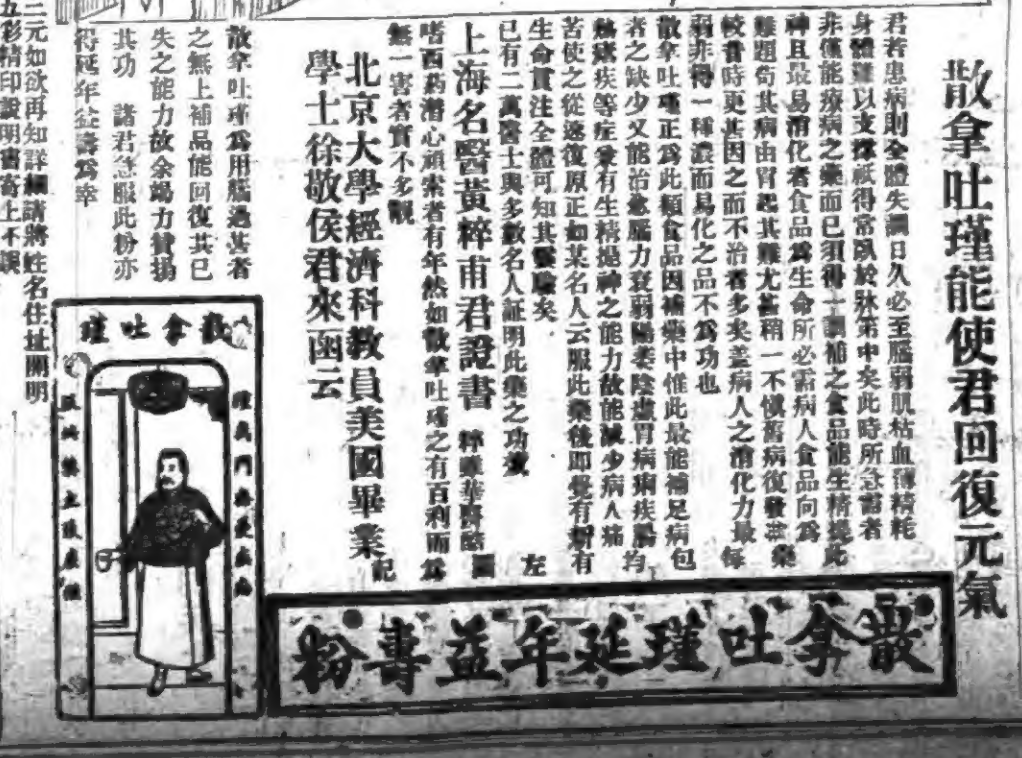 散拿吐瑾能使君回復元氣
君若患病則全體失調日久必至腦弱肌枯血薄精耗
身體難以支撐祇得常臥於牀笫中矣此時所急需者
非僅能療病之藥而已須得一調補之食品能生精提
神且最易消化者食品為生命所必需病人食品向為
難題苟其病由胃起其難尤甚稍一不慎舊病復發
較昔時更甚因之而不治者多矣蓋病人之消化力最
弱非得一種濃而易化之品不為功也
散拿吐瑾正為此類食品因補藥中惟此最能補足病
者之缺少又能治愈腦力衰弱陽萎陰虛胃病痢疾
等症兼有生精提神之能力故能減少病人痛
苦使之從速復原正如某名人云服此藥後即覺有新
生命貫注全體可知其靈驗矣
已有二萬醫士與多數名人証明此藥之功效
上海名醫黃粹甫君證書
粹甫華醫酷
嗜西葯潛心研索者有年然如散拿吐瑾之有百利而
無一害者實不多覯
北京大學經濟科教員美國畢業
學士徐敬侯君來函云
散拿吐瑾為用腦過甚者
之無上補品能回復其已
失之能力故余竭力贊揚
其功 諸君急服此粉亦
得延年益壽為幸
二元如欲再知詳細請將姓名住址開明
五彩精印說明書寄上不誤
散拿吐瑾延年益壽粉
散拿吐瑾